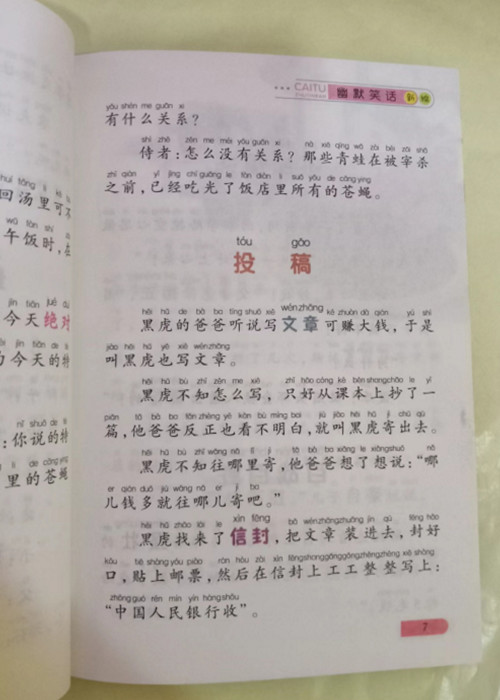 CAITU
幽默笑话
新编
yǒu shén me guān xi
有什么关系?
shì zhě zěn me méi yǒu guān xi nà xiē qīng wā zài bèi zǎi shā
侍者:怎么没有关系?那些青蛙在被宰杀
zhī qián yǐ jīng chī guāng le fàn diàn lǐ suǒ yǒu de cāng ying
之前,已经吃光了饭店里所有的苍蝇。
tóu gǎo
投稿
hēi hǔ de bà ba tīng shuō xiě wénzhāng kě zhuàn dà qián yú shì
黑虎的爸爸听说写文章可赚大钱,于是
jiào hēi hǔ yě xiě wénzhāng
叫黑虎也写文章。
hēi hǔ bù zhī zěn me xiě zhǐ hǎo cóng kè běn shang chāo le yì
黑虎不知怎么写,只好从课本上抄了一
piān tā bà ba fǎn zhèng yě kàn bù míng bai jiù jiào hēi hǔ jì chū qù
篇,他爸爸反正也看不明白,就叫黑虎寄出去。
hēi hǔ bù zhī wǎng nǎ lǐ jì tā bà ba xiǎng le xiǎng shuō nǎ
黑虎不知往哪里寄,他爸爸想了想说:“哪
er qián duō jiù wǎng nǎ er jì ba
儿钱多就往哪儿寄吧。”
hēi hǔ zhǎo lái le xìn fēng bǎ wénzhāng zhuāng jìn qù fēng hǎo
黑虎找来了信封,把文章装进去,封好
kǒu tiē shàng yóu piào rán hòu zài xìn fēng shang gōng gōng zhěng zhěng xiě shàng
口,贴上邮票,然后在信封上工工整整写上:
zhōng guó rén mín yín háng shōu
“中国人民银行收”。
7
回汤里可不
午饭时,在
jīn tiān jué duì
今天绝对
今天的特
nǐ shuō de
:你说的特
里的苍蝇